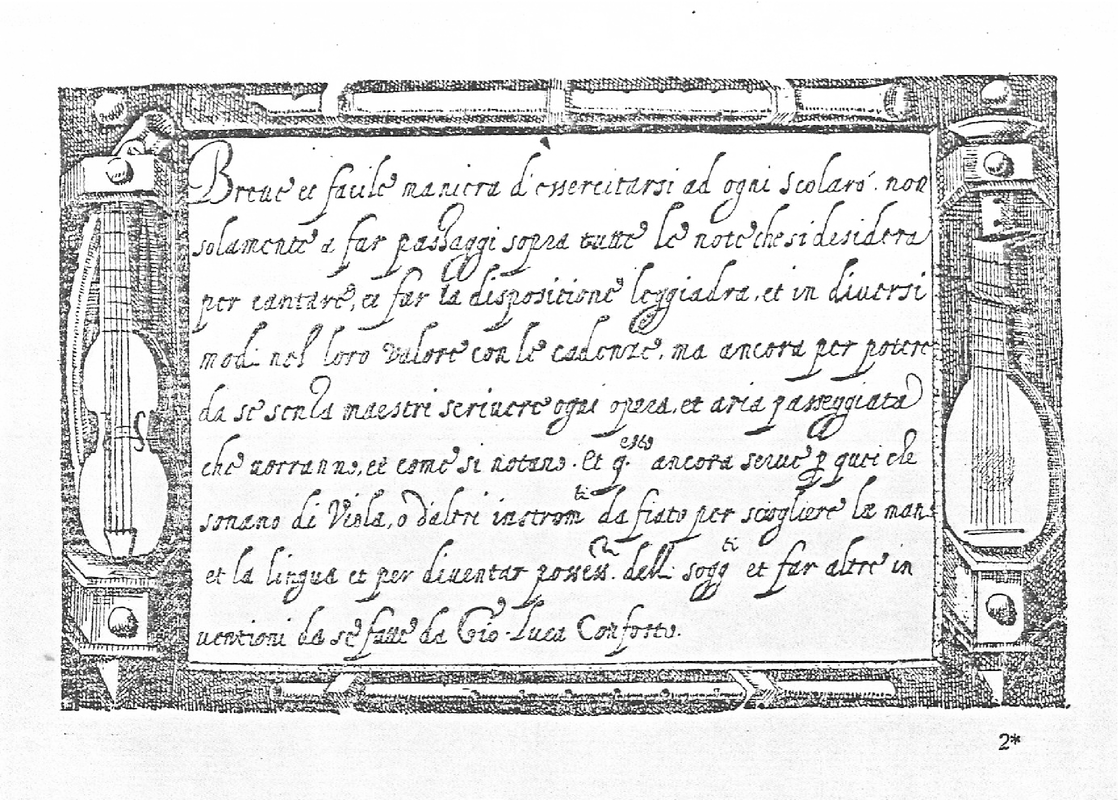 Breue et facile maniera d'essercitarsi ad ogni scolaro. non
solamente a far passaggi sopra tutte le note che si desidera
per cantare, et far la dispositione leggiadra, et in diuersi
modi nel loro valore con le cadenze, ma ancora per potere
da se senza maestri scriuere ogni opera, et aria passeggiata
che uorranno, et come si notano. et q.esto ancora serue p quei che
sonano di Viola, o d'altri instromti da fiato per sciogliere la mano
et la lingua et per diuentar possess.ri delli soggti et far altre in
uentioni da se fatte da Gio. Luca Conforto.
2*